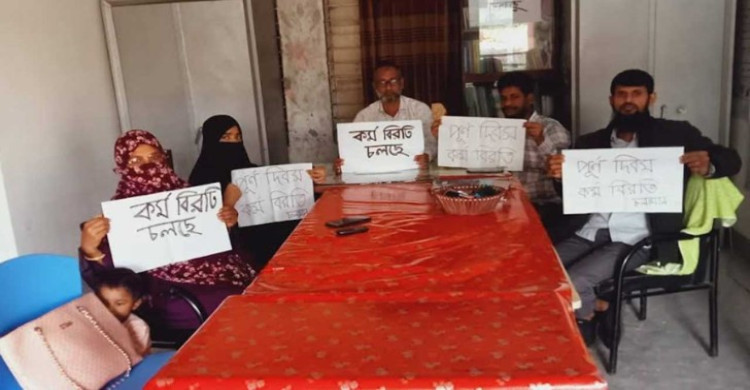 কর্ম বিরতি
চলছে
পূর্ণ দিবস
কর্ম বিরতি
কর্ম বিরতি
চলছে
পূর্ণ দিবস
কর্ম বিরতি
পূর্ণ দিবস
কর্ম বিরতি
চলমান